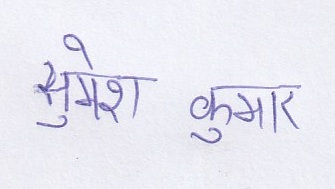 सुमेश कुमार